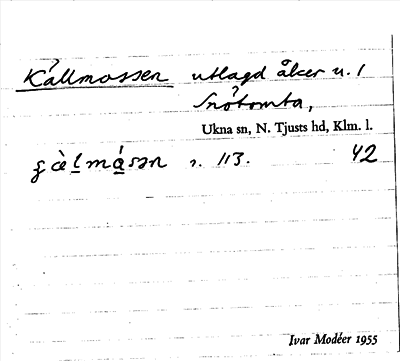 Kållmossen utlagd åker u. 1
Snötomta,
Ukna sn, N. Tjusts hd, Klm. l.
s. 113. 42
Ivar Modéer 1955